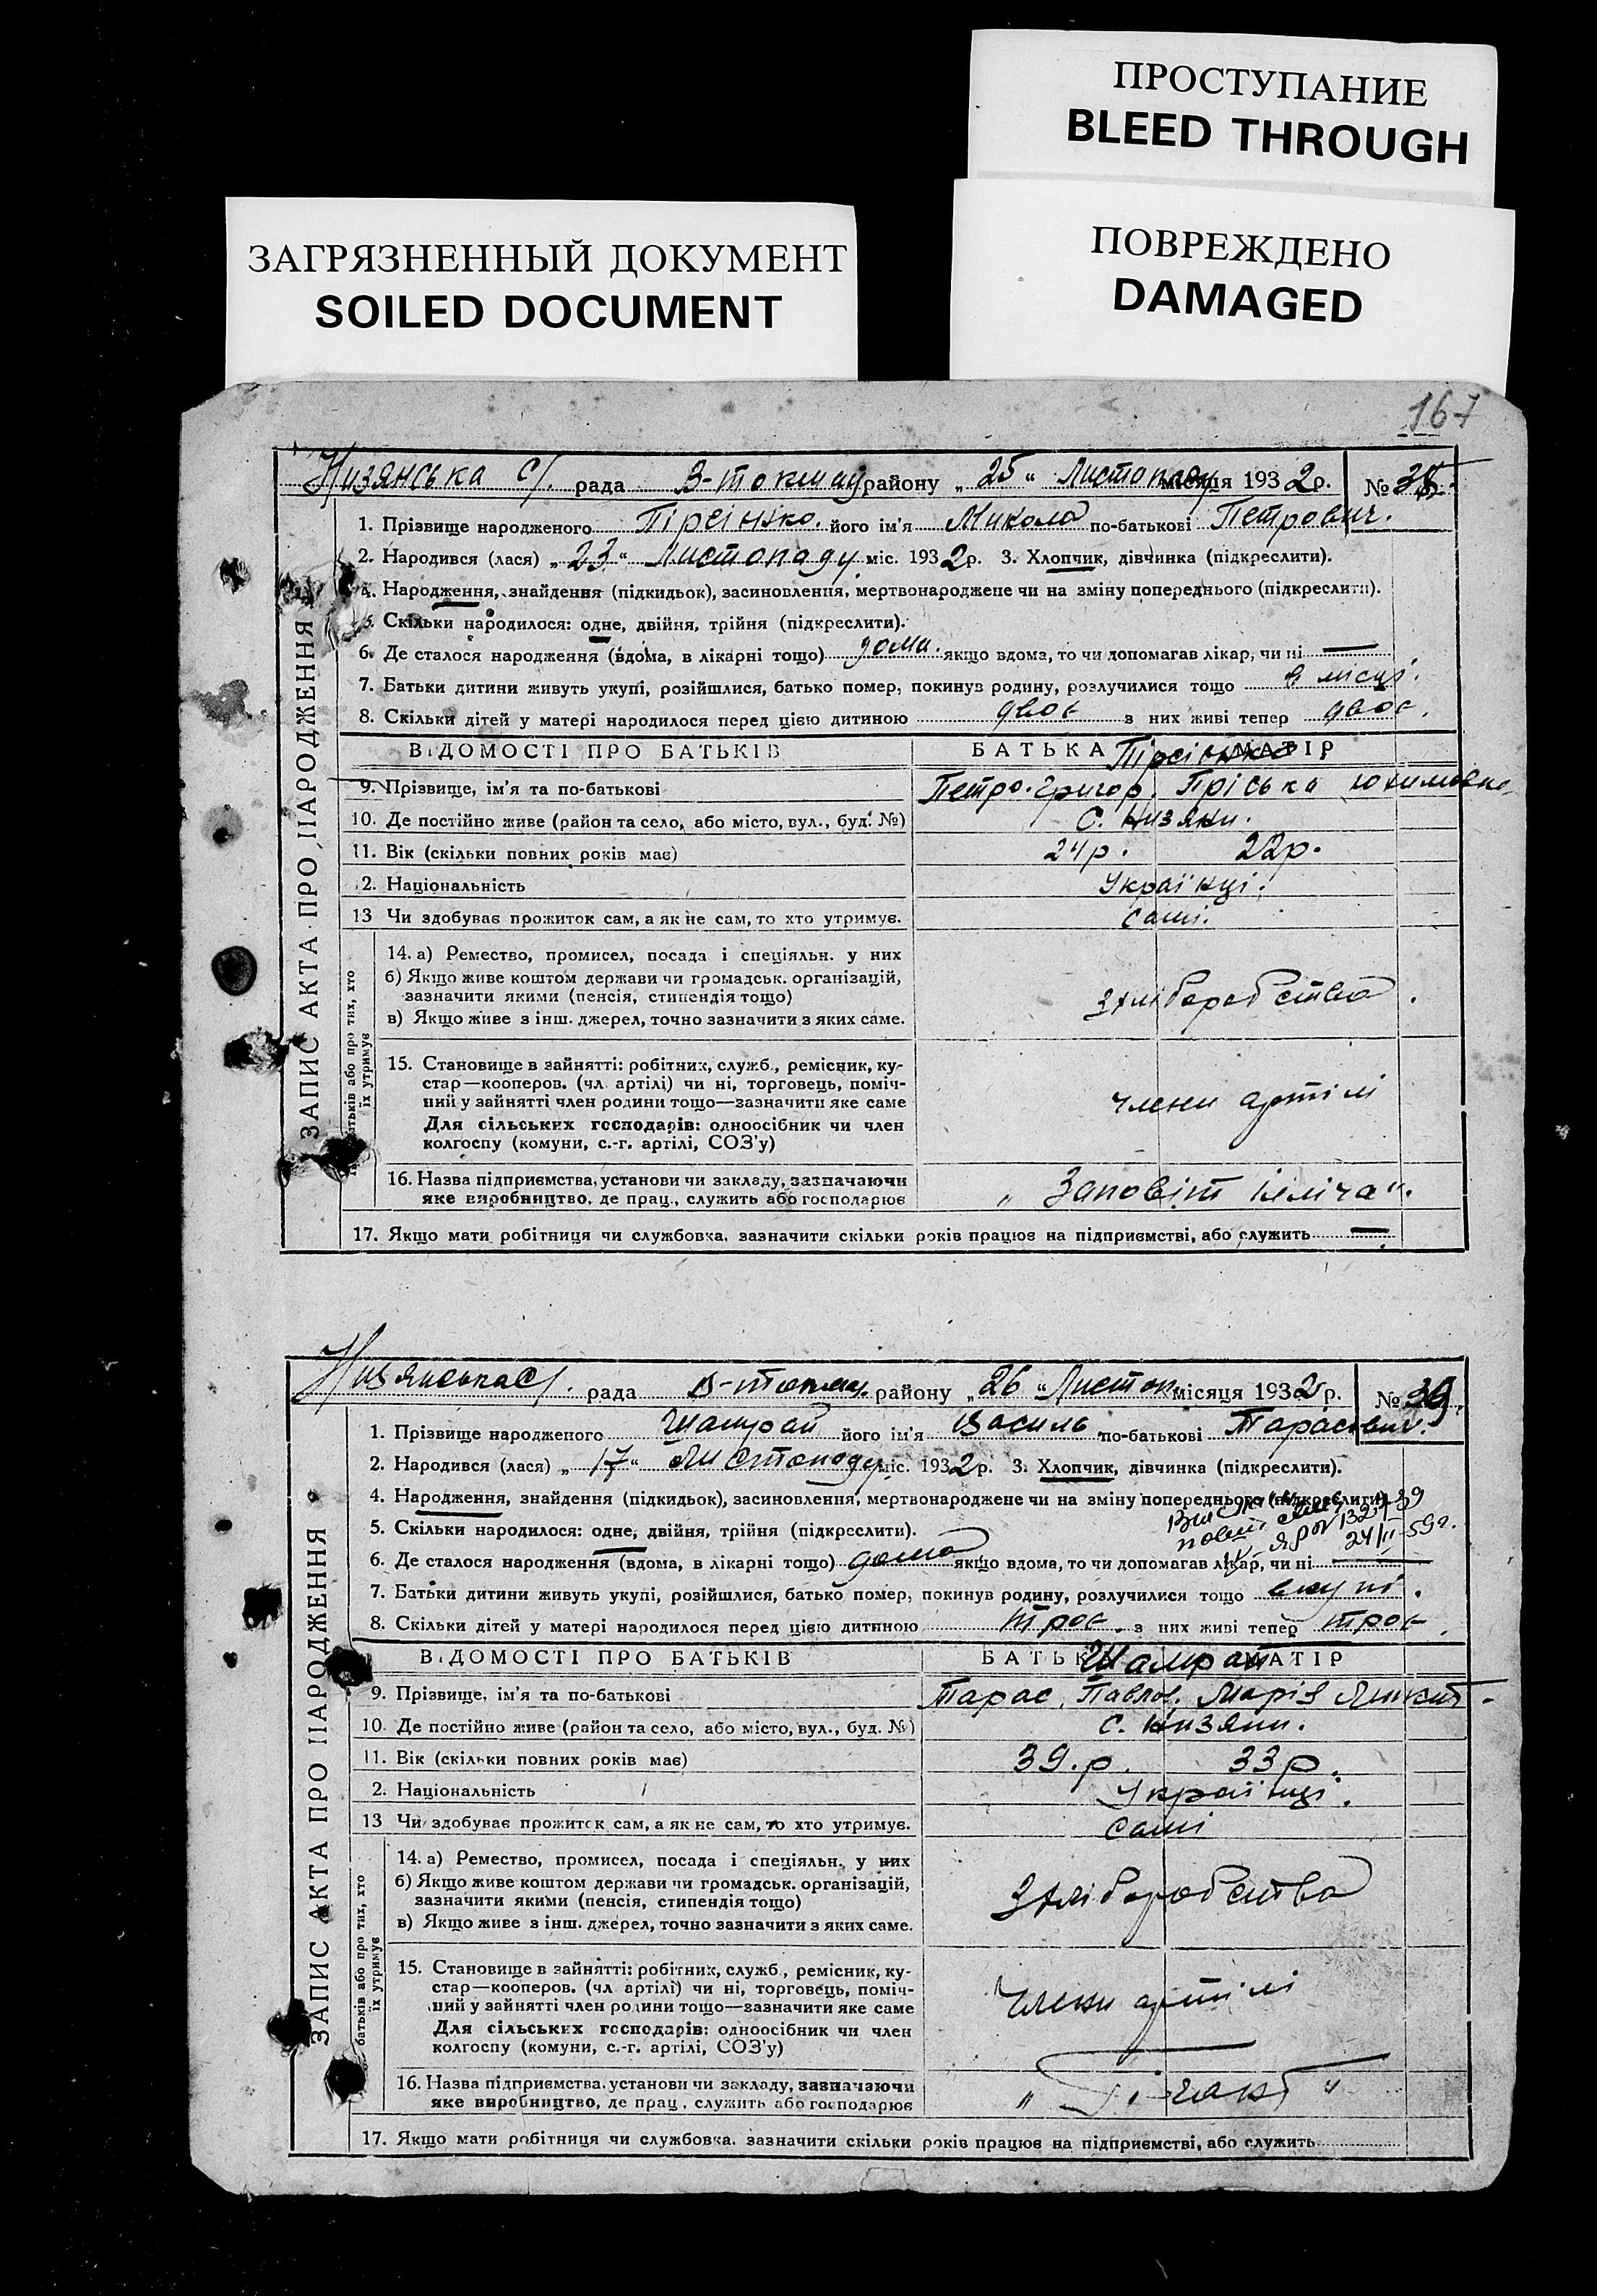 ПРОСТУПАНИЕ
BLEED THROUGH
ЗАГРЯЗНЕННЫЙ ДОКУМЕНТ
SOILED DOCUMENT
ПОВРЕЖДЕНО
DAMAGED
167
Низянська с/. рада В-токмац району „25“ Листопаду місяця 1932 р. № 38
ЗАПИС АКТА ПРО НАРОДЖЕННЯ
1. Прізвище народженого Пірсінко. його ім'я Микола по-батькові Петрович.
2. Народився (лася) „23“ Листопаду міс. 1932 р. 3. Хлопчик, дівчинка (підкреслити).
4. Народження, знайдення (підкидьок), засиновлення, мертвонароджене чи на зміну попереднього (підкреслити).
5. Скільки народилося: одне, двійня, трійня (підкреслити).
6. Де сталося народження (вдома, в лікарні тощо) дома. якщо вдома, то чи допомагав лікар, чи ні —
7. Батьки дитини живуть укупі, розійшлися, батько помер, покинув родину, розлучилися тощо в місці.
8. Скільки дітей у матері народилося перед цією дитиною двоє з них живі тепер двоє.
ВІДОМОСТІ ПРО БАТЬКІВ БАТЬКА МАТІР
Пірсінко
9. Прізвище, ім'я та по-батькові Петро. Григор. Пріська Юхимовна
10. Де постійно живе (район та село, або місто, вул., буд. №) с. Низяни.
11. Вік (скільки повних років має) 24 р. 22 р.
12. Національність Українці.
13 Чи здобуває прожиток сам, а як не сам, то хто утримує. самі.
батьків або про тих, хто
їх утримує
14. а) Ремество, промисел, посада і спеціяльн. у них
б) Якщо живе коштом держави чи громадськ. організацій,
зазначити якими (пенсія, стипендія тощо)
в) Якщо живе з інш. джерел, точно зазначити з яких саме.
Хліборобство.
15. Становище в зайнятті: робітник, служб., ремісник, ку-
стар—кооперов. (чл. артілі) чи ні, торговець, поміч-
ний у зайнятті член родини тощо—зазначити яке саме
Для сільських господарів: одноосібник чи член
колгоспу (комуни, с.-г. артілі, СОЗ'у)
члени артілі
16. Назва підприємства, установи чи закладу, зазначаючи
яке виробництво, де прац., служить або господарює
„Заповіт Ілліча“.
17. Якщо мати робітниця чи службовка, зазначити скільки років працює на підприємстві, або служить —
Низянська с/. рада В-токмац. району „26“ Листоп. місяця 1932 р. № 39.
ЗАПИС АКТА ПРО НАРОДЖЕННЯ
1. Прізвище народженого Шамрай його ім'я Василь по-батькові Тарасович.
2. Народився (лася) „17“ Листопаду міс. 1932 р. 3. Хлопчик, дівчинка (підкреслити).
4. Народження, знайдення (підкидьок), засиновлення, мертвонароджене чи на зміну попереднього (підкреслити).
5. Скільки народилося: одне, двійня, трійня (підкреслити).
24/II-59 г.
6. Де сталося народження (вдома, в лікарні тощо) дома якщо вдома, то чи допомагав лікар, чи ні —
7. Батьки дитини живуть укупі, розійшлися, батько помер, покинув родину, розлучилися тощо вкупі.
8. Скільки дітей у матері народилося перед цією дитиною троє. з них живі тепер троє.
ВІДОМОСТІ ПРО БАТЬКІВ БАТЬКА МАТІР
Шамрай
9. Прізвище, ім'я та по-батькові Тарас. Павлов. Марія Микит-
10. Де постійно живе (район та село, або місто, вул., буд. №) с. Низяни.
11. Вік (скільки повних років має) 39. р. 33 р.
2. Національність Українці.
13 Чи здобуває прожиток сам, а як не сам, то хто утримує. самі
батьків або про тих, хто
їх утримує
14. а) Ремество, промисел, посада і спеціяльн. у них
б) Якщо живе коштом держави чи громадськ. організацій,
зазначити якими (пенсія, стипендія тощо)
в) Якщо живе з інш. джерел, точно зазначити з яких саме.
Хліборобство
15. Становище в зайнятті: робітник, служб., ремісник, ку-
стар—кооперов. (чл. артілі) чи ні, торговець, поміч-
ний у зайнятті член родини тощо—зазначити яке саме
Для сільських господарів: одноосібник чи член
колгоспу (комуни, с.-г. артілі, СОЗ'у)
члени артілі
16. Назва підприємства, установи чи закладу, зазначаючи
яке виробництво, де прац., служить або господарює
„Гігант“
17. Якщо мати робітниця чи службовка, зазначити скільки років працює на підприємстві, або служить